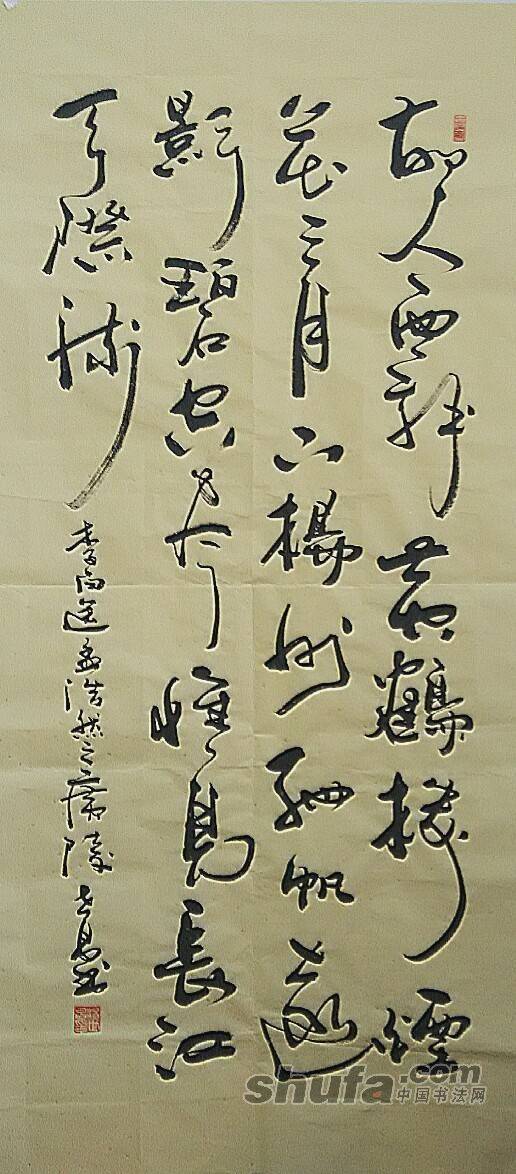 故人西辞黄鹤楼煙
花三月下楊州孤帆遠
影碧空尽惟見長江
天際流
李白送孟浩然之廣陵
shufa.com
中国书法网